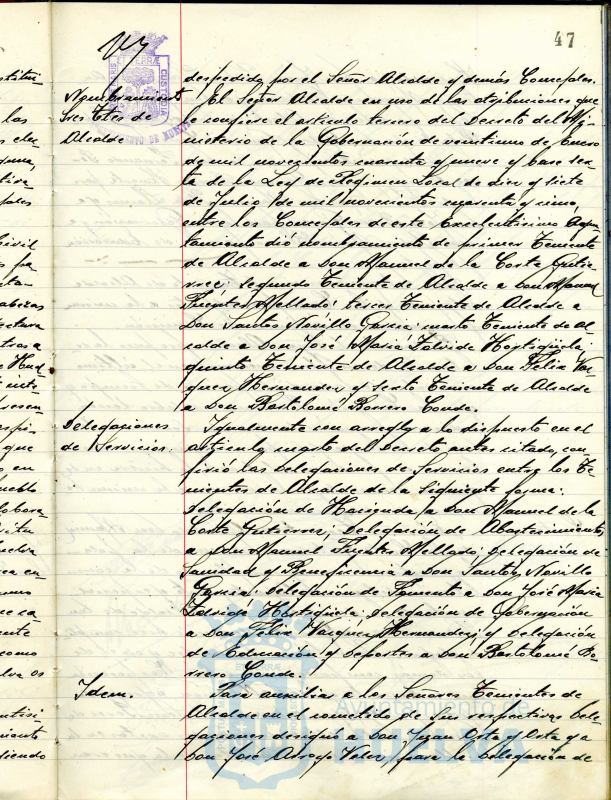 47
despedido por el Señor Alcalde y demás Concejales.
Nombramiento
tres Ttes de
Alcalde
El Señor Alcalde en uso de las atribuciones que
le confiere el articulo tercero del Decreto del Mi-
nisterio de la Gobernación de veintiuno de Enero
de mil novecientos cuarenta y nueve y base sex-
ta de la Ley de Regimen Local de diez y siete
de Julio de mil novecientos cuarenta y cinco,
entre los Concejales de este Excelentisimo Ayun-
tamiento dió nombramiento de primer Teniente
de Alcalde a Don Manuel de la Corte Gutie-
rrez; segundo Teniente de Alcalde a Don Manuel
Fuentes Mellado; tercer Teniente de Alcalde a
Don Santos Novillo Garcia; cuarto Teniente de Al
calde a Don José Maria Zalvide Hortigüela;
quinto Teniente de Alcalde a Don Felix Vaz
quez Hernandez y sexto Teniente de Alcalde
a Don Bartolomé Borrero Conde.
Delegaciones
de Servicios.
Igualmente con arreglo a lo dispuesto en el
articulo cuarto del Decreto antes citado, con
firió las Delegaciones de Servicios entre los Te-
nientes de Alcalde de la siguiente forma:
Delegación de Hacienda a Don Manuel de la
Corte Gutierrez; Delegación de Abastecimientos,
a Don Manuel Fuentes Mellado; Delegación de
Sanidad y Beneficencia a Don Santos Novillo
Garcia; Delegación de Fomento a Don José Maria
Zalvide Hortigüela; Delegación de Gobernación
a Don Felix Vazquez Hernandez y Delegación
de Educación y Deportes a Don Bartolomé Bo-
rrero Conde.
Idem.
Para auxiliar a los Señores Tenientes de
Alcalde en el cometido de sus respectivas Dele-
gaciones designó a Don Juan Orta y Orta y a
Don José Arroyo Velez para la Delegación de
Ayuntamiento de
HUELVA